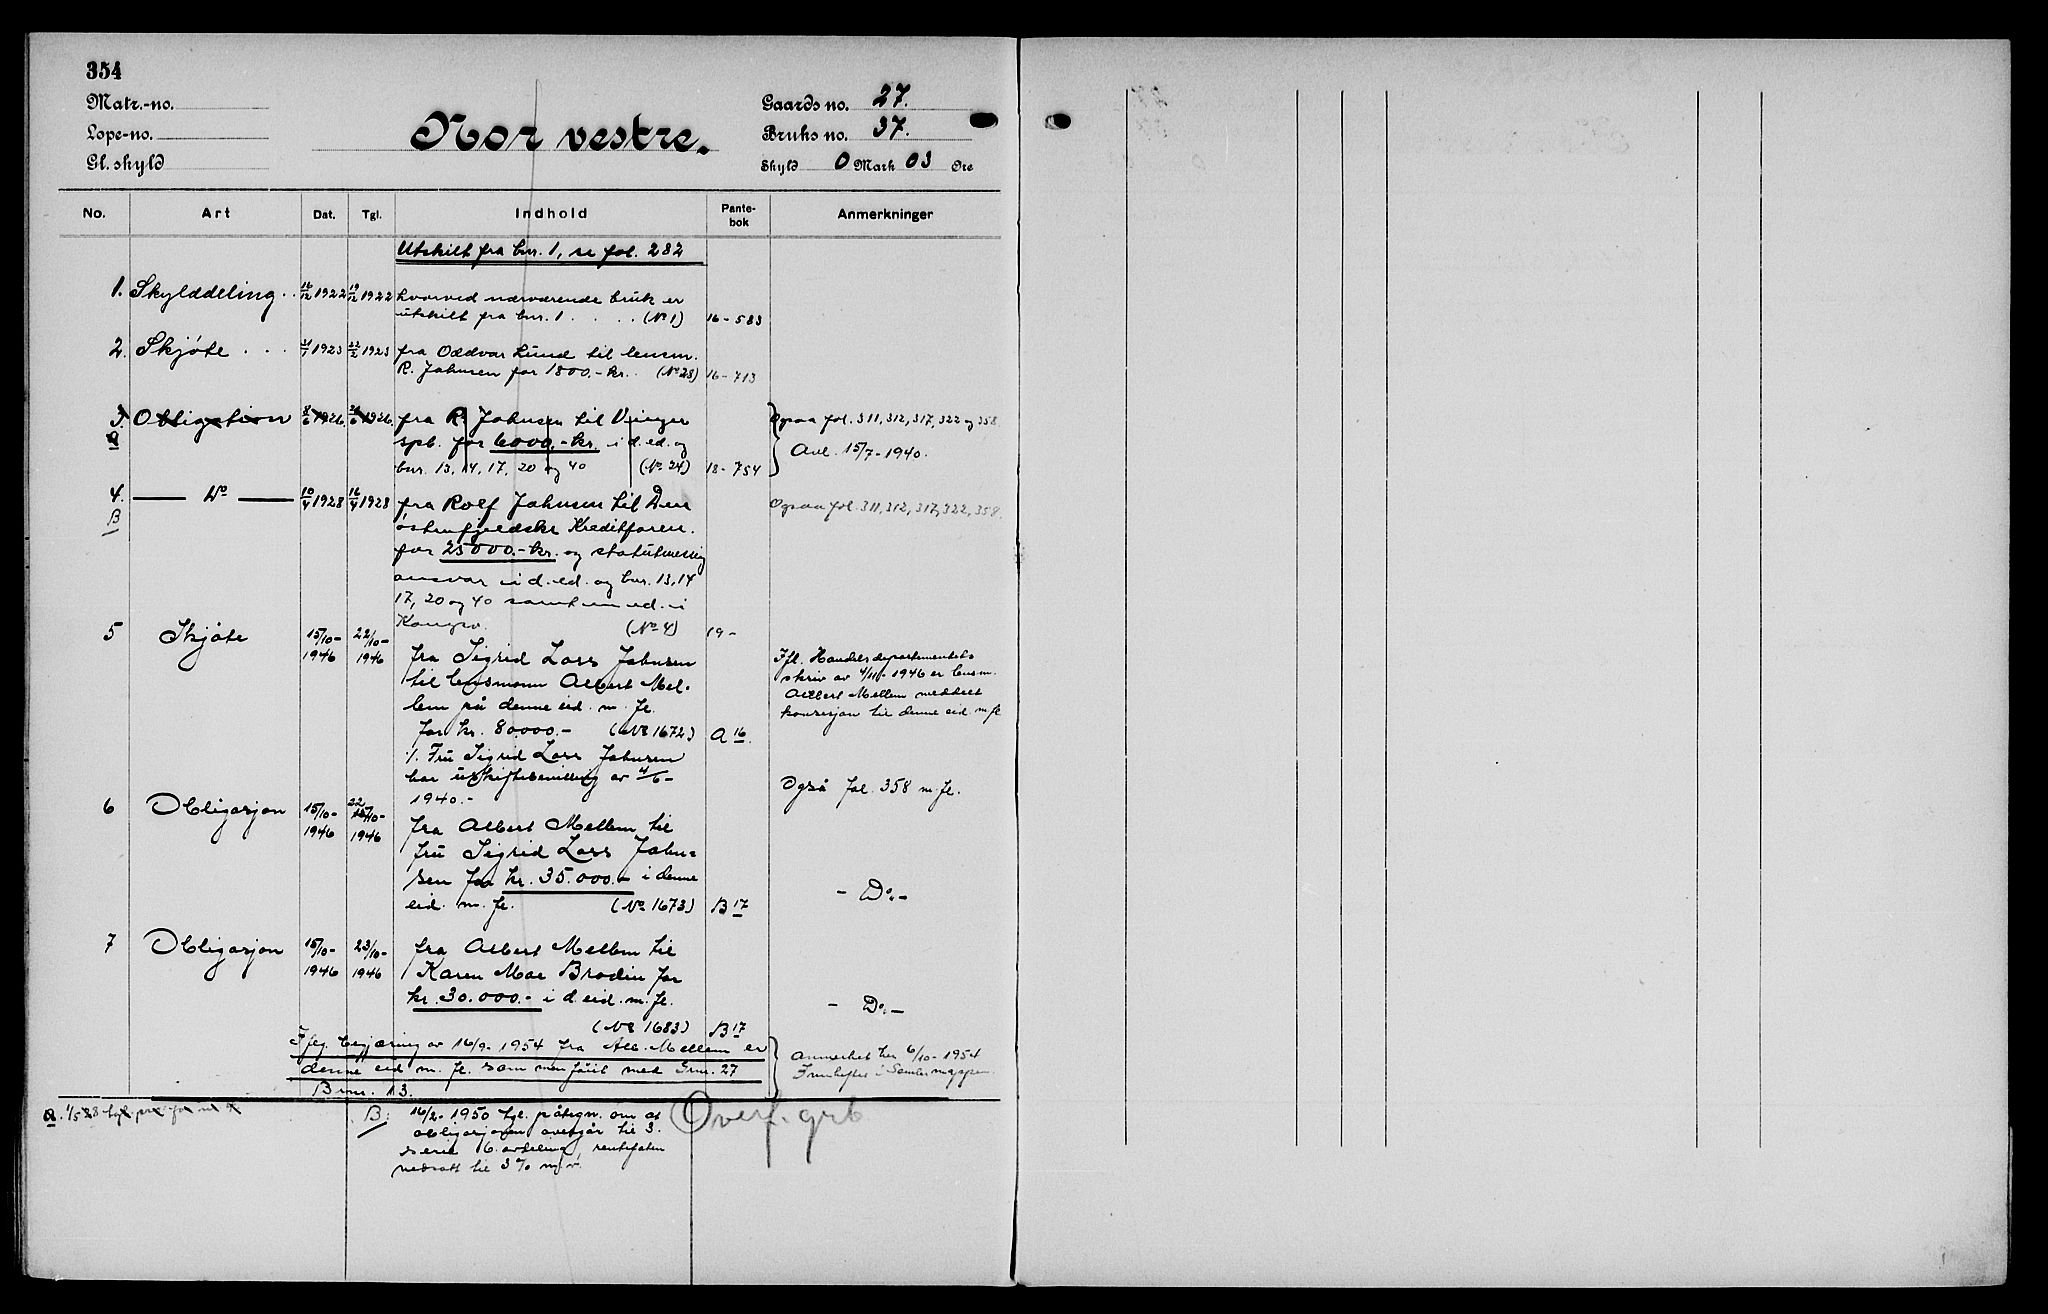 354
Matr.-no.
Lope-no.
Gl. skyld
Nor vestre.
Gaards no. 27.
Bruks no. 37.
Skyld 0 Mark 03 Øre
No. Art Dat. Tgl. Indhold Pante-bok Anmerkninger
Utskilt fra bnr. 1, se fol. 282
1. Skylddeling . . 16/12 1922 19/12 1922 hvorved nærværende bruk er
utskilt fra bnr. 1 . . . . (No 1) 16-583
2. Skjøte . . . 1923 22/2 1923 fra Oddvar Lund til lensm.
R. Johnsen for 1800.- kr. (No 28) 16-713
3. Obligation 8/6 1926. 1926. fra R. Johnsen til Vinger Ogsaa fol. 311, 312, 317, 322 og 358
a spb. for 6000.- kr. i d. ed. og Avl. 15/7-1940.
bnr. 13, 14, 17, 20 og 40 (No. 24) 18-754
4. Do 10/4 1928 16/4 1928 fra Rolf Johnsen til Den Ogsaa fol. 311, 312, 317, 322, 358.
B østenfjeldske Kreditforen.
for 25000.- kr. og statutmessig
ansvar i d. ed. og bnr. 13, 14
17, 20 og 40 samt en ed. i
Kongsv. (No 4) 19-
5 Skjøte 15/10- 1946 22/10- 1946 fra Sigrid Lass Johnsen
til lensmann Albert Mel-
lem på denne eid. m. fl.
for kr. 80000.- (No 1672) A 16
Ifl. Handelsdepartementets
skriv av 4/11-1946 er lensm.
Albert Mellem meddelt
konsesjon til denne eid. m fl
./. Fru Sigrid Lass Johnsen
har uskiftebevilling av 4/6-
1940.-
Også fol. 358 m. fl.
6 Obligasjon 15/10- 1946 22/10- 1946 fra Albert Mellem til
fru Sigrid Lass John-
sen for kr. 35.000.- i denne
eid. m. fl. (No 1673) B 17
- Do.-
7 Obligasjon 15/10- 1946 23/10- 1946 fra Albert Mellem til
Karen Moe Brodin for
kr. 30.000.- i d. eid. m. fl.
(No 1683) B 17
- Do.-
Iflg. begjæring av 16/9-1954 fra Alb. Mellem er
denne eid m. fl. sammenføiet med Gnr. 27
Bnr. 13.
Anmerket her 6/10-1954
Innheftet i Samlermappen.
a. 1/5 28
B: 16/2-1950 tgl. påtegn. om at
obligasjonen overgår til 3.
serie 6. avdeling, rentefoten
nedsatt til 3% m. v.
Overf. grb